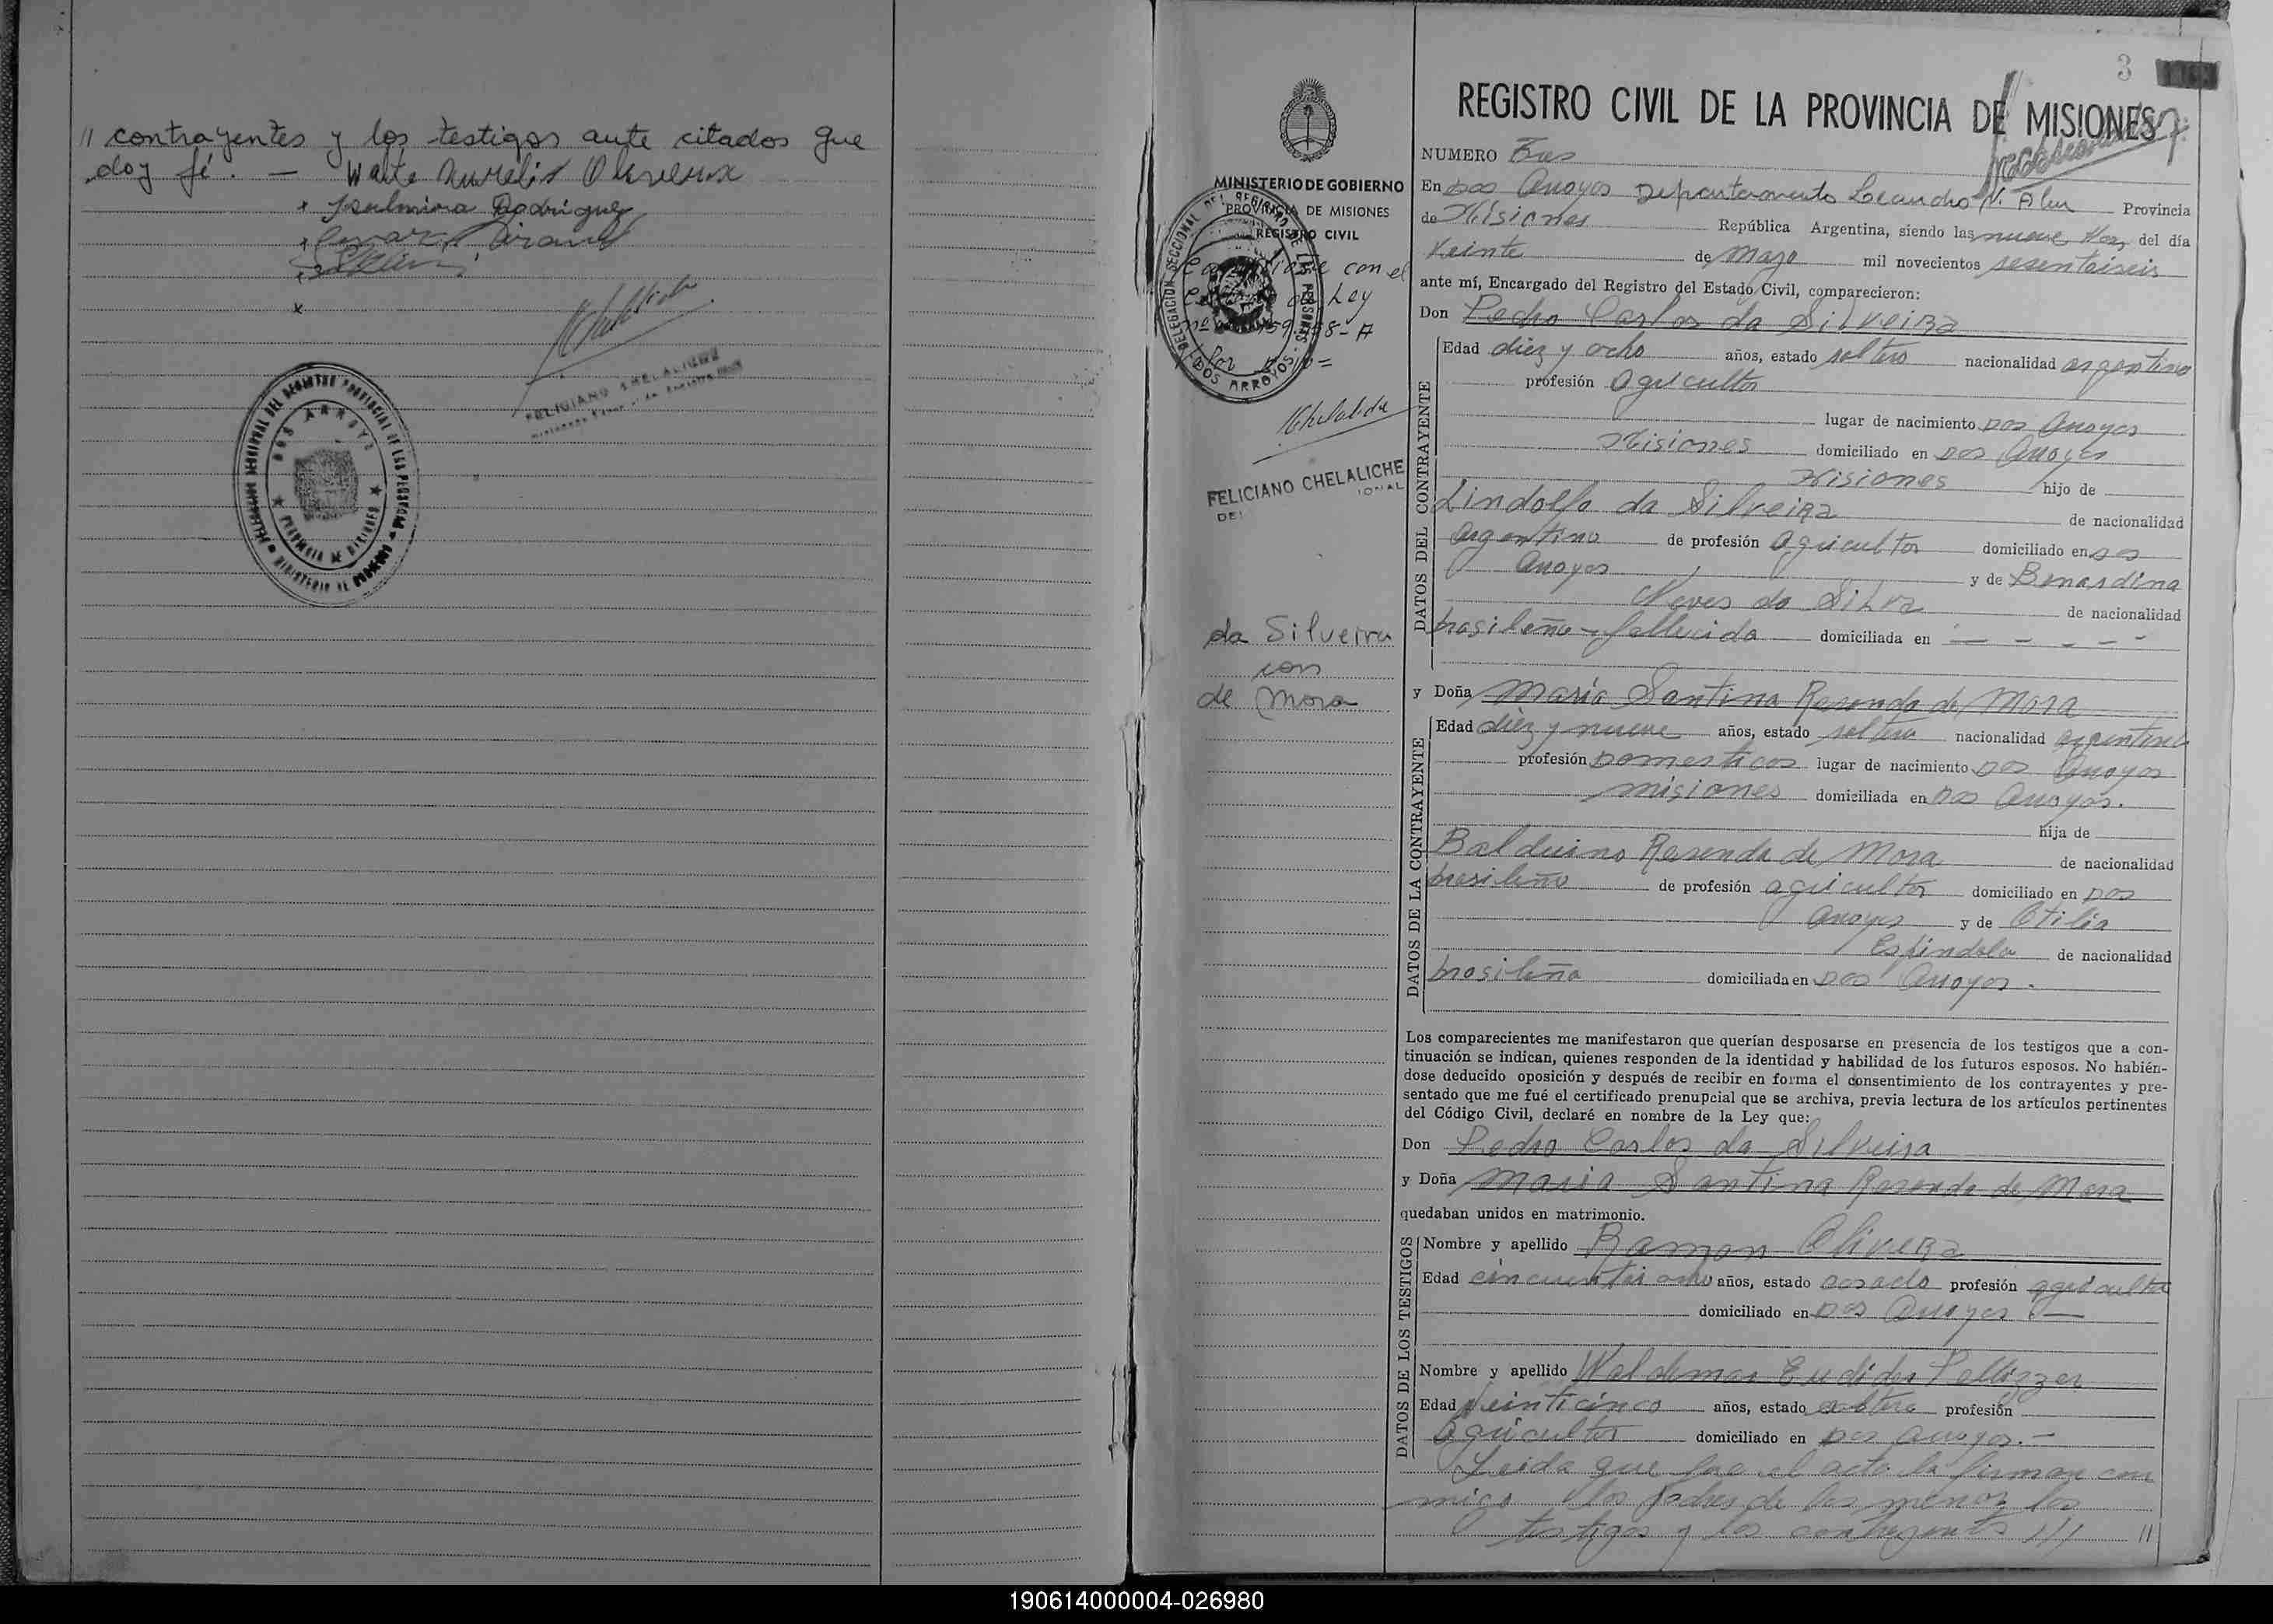 // contrayentes y los testigos ante citados que
doy fé. —
Rodriguez
FELICIANO CHELALICHE
DOS ARROYOS
3
REGISTRO CIVIL DE LA PROVINCIA DE MISIONES
MINISTERIO DE GOBIERNO
PROVINCIA DE MISIONES
REGISTRO CIVIL
DELEGACION SECCIONAL DEL REGISTRO DE LAS PERSONAS
DOS ARROYOS
con el
Ley
FELICIANO CHELALICHE
da Silveira
con
de Mora
NUMERO Tres
En Dos Arroyos Departamento Leandro N. Alem Provincia
de Misiones República Argentina, siendo las nueve del día
veinte de mayo mil novecientos sesentaiseis
ante mí, Encargado del Registro del Estado Civil, comparecieron:
Don Pedro Carlos da Silveira
DATOS DEL CONTRAYENTE
Edad diez y ocho años, estado soltero nacionalidad argentino
profesión agricultor
lugar de nacimiento Dos Arroyos
Misiones domiciliado en Dos Arroyos
Misiones hijo de
Lindolfo da Silveira de nacionalidad
argentino de profesión agricultor domiciliado en Dos
Arroyos y de Bernardina
Neves da Silva de nacionalidad
brasileña - fallecida domiciliada en — - - - -
y Doña María Santina Resende de Mora
DATOS DE LA CONTRAYENTE
Edad diez y nueve años, estado soltera nacionalidad argentina
profesión Domesticos lugar de nacimiento Dos Arroyos
Misiones domiciliada en Dos Arroyos.
hija de
Balduino Resende de Mora de nacionalidad
brasileño de profesión agricultor domiciliado en Dos
Arroyos y de Otilia
Espindola de nacionalidad
brasileña domiciliada en Dos Arroyos.
Los comparecientes me manifestaron que querían desposarse en presencia de los testigos que a con-
tinuación se indican, quienes responden de la identidad y habilidad de los futuros esposos. No habién-
dose deducido oposición y después de recibir en forma el consentimiento de los contrayentes y pre-
sentado que me fué el certificado prenupcial que se archiva, previa lectura de los artículos pertinentes
del Código Civil, declaré en nombre de la Ley que:
Don Pedro Carlos da Silveira
y Doña Maria Santina Resende de Mora
quedaban unidos en matrimonio.
DATOS DE LOS TESTIGOS
Nombre y apellido Ramon Olivera
Edad años, estado casado profesión agricultor
domiciliado en Dos Arroyos —
Nombre y apellido Waldemar Euclides Pellizzer
Edad veinticinco años, estado soltero profesión
agricultor domiciliado en Dos Arroyos. —
Leida que fue el acta la firman con
migo los padres de los menor los
testigos y los contrayentes /// //
190614000004-026980